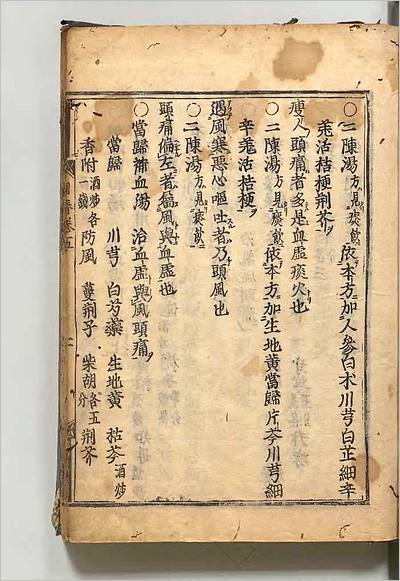 〇二陳湯方見痰飲依本方加人參白朮川芎白芷細辛
羗活桔梗荆芥
瘦人頭痛者多是血虛痰火也
〇二陳湯方見痰飲依本方加生地黃當歸片芩川芎細
辛羗活桔梗
遇風寒惡心嘔吐者乃頭風也
頭痛偏左者屬風與血虛也
〇當歸補血湯 治血虛與風頭痛
當歸 川芎 白芍藥 生地黃 粘芩酒炒
香附酒炒各一錢 防風 蔓荆子 柴胡各五分 荆芥